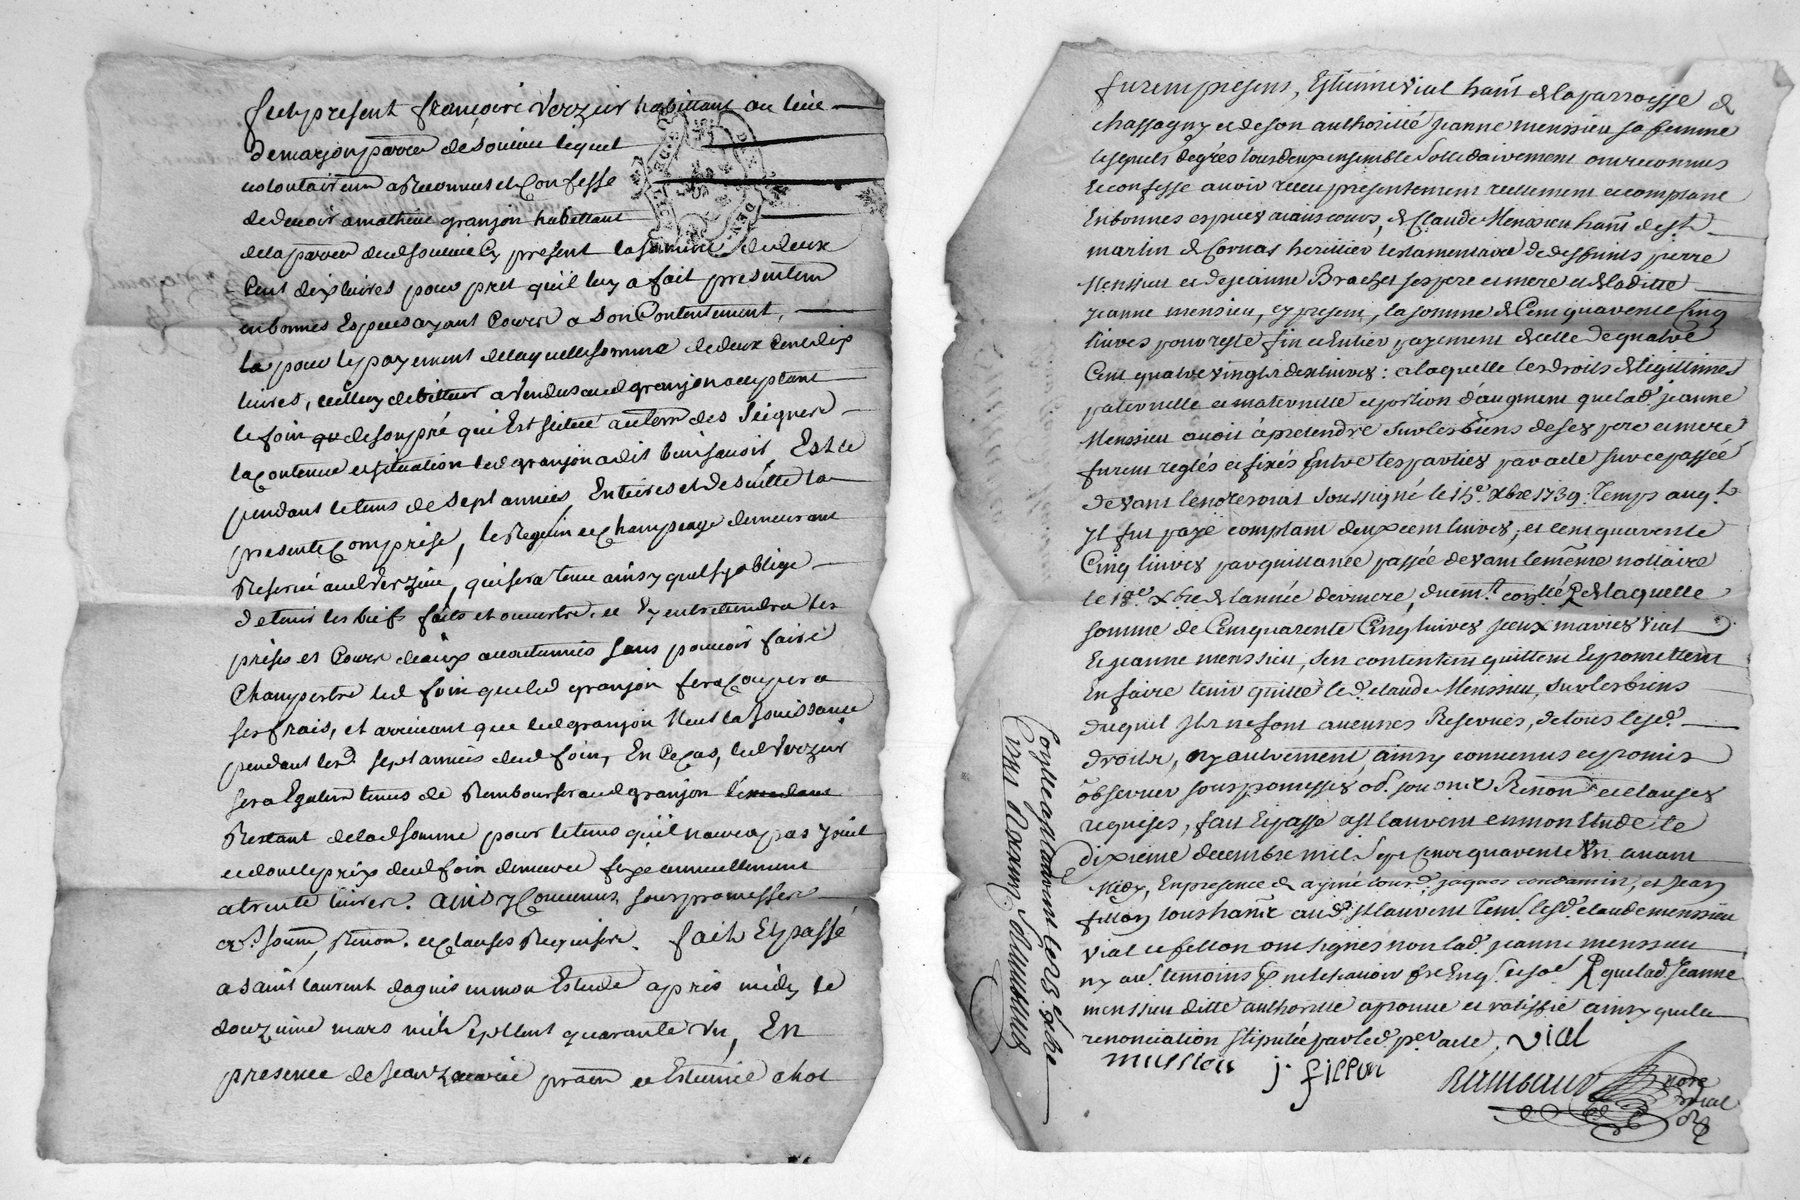 fut present françois verzeir habittant au lieu
de marjon parre de soucieu lequel
volontairem a Reconnus et Confesse
de devoir a mathieu granjon habittant
de la parre dud soucieu Cy present la somme de deux
Cent dix livres pour pret qu'il luy a fait presentem
en bonnes Especes ayant Cours a son Contentement,
pour le payement de laquelle somme de deux Cent dix
livres, icelluy debitteur a vendus aud granjon acceptant
le foin de son pré qui Est scitué au des Seigner
la Contenue et situation led granjon a dit bien scavoir, Est ce
pendant le tems de sept années Entieres et de suitte la
presente Comprise, le Reguin et Champeage demeurant
Reservé aud verzeir, qui sera tenu ainsy quel s'y oblige
de tenir les biefs faits et ouverts, et d'y entretiendra les
prises et Cours d'eaux accoutumés sans pouvoir faire
Champertre led foin que led granjon fera Couper a
ses frais, et arrivant que led granjon N'eut la Jouissance
pendant lesd. sept années dud foin, En Ce Cas, led verzeir
sera Egalem tenus de Rembourser aud granjon
Restant de lad somme pour le tems qu'il n'aura pas Jouit
et dont le prix dud foin demeure fixé annuellement
a trente livres. ainsy Convenus sous promesses
Renon. et Clauses Requises. fait Et passé
a saint laurent dagnis en mon Estude apres midy le
douzieme mars mil sept Cent quarante un, En
presence de Jean et Estienne chol
furent presens, Estienne vial hant de la parroisse de
chassagny et de son authorité Jeanne menssieu sa femme
lesquels de grés tous deux ensemble solidairement ont reconnus
Et confessé avoir receu presentement reellement et comptant
En bonnes especes aiant cours, de Claude Menssieu hant de St
martin de Cornas heritier testamentaire de deffunts pierre
Menssieu et de jeanne Brachet ses pere et mere et de laditte
Jeanne menssieu, cy present, la somme de Cent quarente Cinq
livres pour reste fin et Entier payement de celle de quatre
Cent quatre vingts dix livres: a laquelle les droits de legitimes
paternelle et maternelle et portion d'augment que lad. jeanne
Menssieu avoit à pretendre sur les biens de ses pere et mere
furent reglés et fixés Entre les parties par acte sur ce passée
devant le notre royal soussigné le 15e. xbre 1739. Temps auql
yl fut payé comptant deux cent livres, et cent quarente
Cinq livres par quittance passée devant le même nottaire
le 18e. xbre de l'année derniere, de laquelle
somme de Cent quarente Cinq livres iceux mariés vial
Et jeanne menssieu, s'en contentent quittent Et promettent
En faire tenir quitte led. claude Menssieu, sur les biens
duquel ils ne font aucunes Reserves, de tous lesd.
droits, ny autrement, ainsy convenus et promis
observer sous promesses Renon et clauses
requises, fait Et passé a St laurent en mon Etude le
dixieme decembre mil sept Cent quarente Un avant
Midy, En presence de jaques condamin, et Jean
fillon tous hans aud. St laurent Lesd. claude menssieu
vial et fillon ont signés non lad. jeanne menssieu
ny au. temoins pr ne le scavoir que lad. Jeanne
menssieu ditte authorisée aprouve et ratiffie ainsy que la
renonciation stipulée par led. pnt acte. vial
mussieu j. fillon
Rambaud notre royal